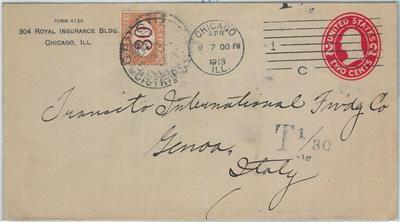 FORM 4736
304 ROYAL INSURANCE BLDG.
CHICAGO, ILL.
30
CHICAGO
APR
9 7 00 PM
1913
ILL.
1
C
UNITED STATES
TWO CENTS
T
Transito International Fwdg Co
Genoa,
Italy
T 1/30